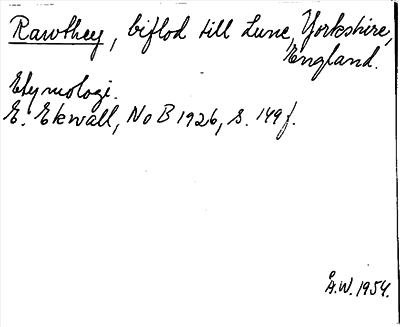 Rawthey, biflod till Lune, Yorkshire,
England.
Etymologi.
E. Ekwall, NoB 1926, s. 149 f.
Å.W. 1954.